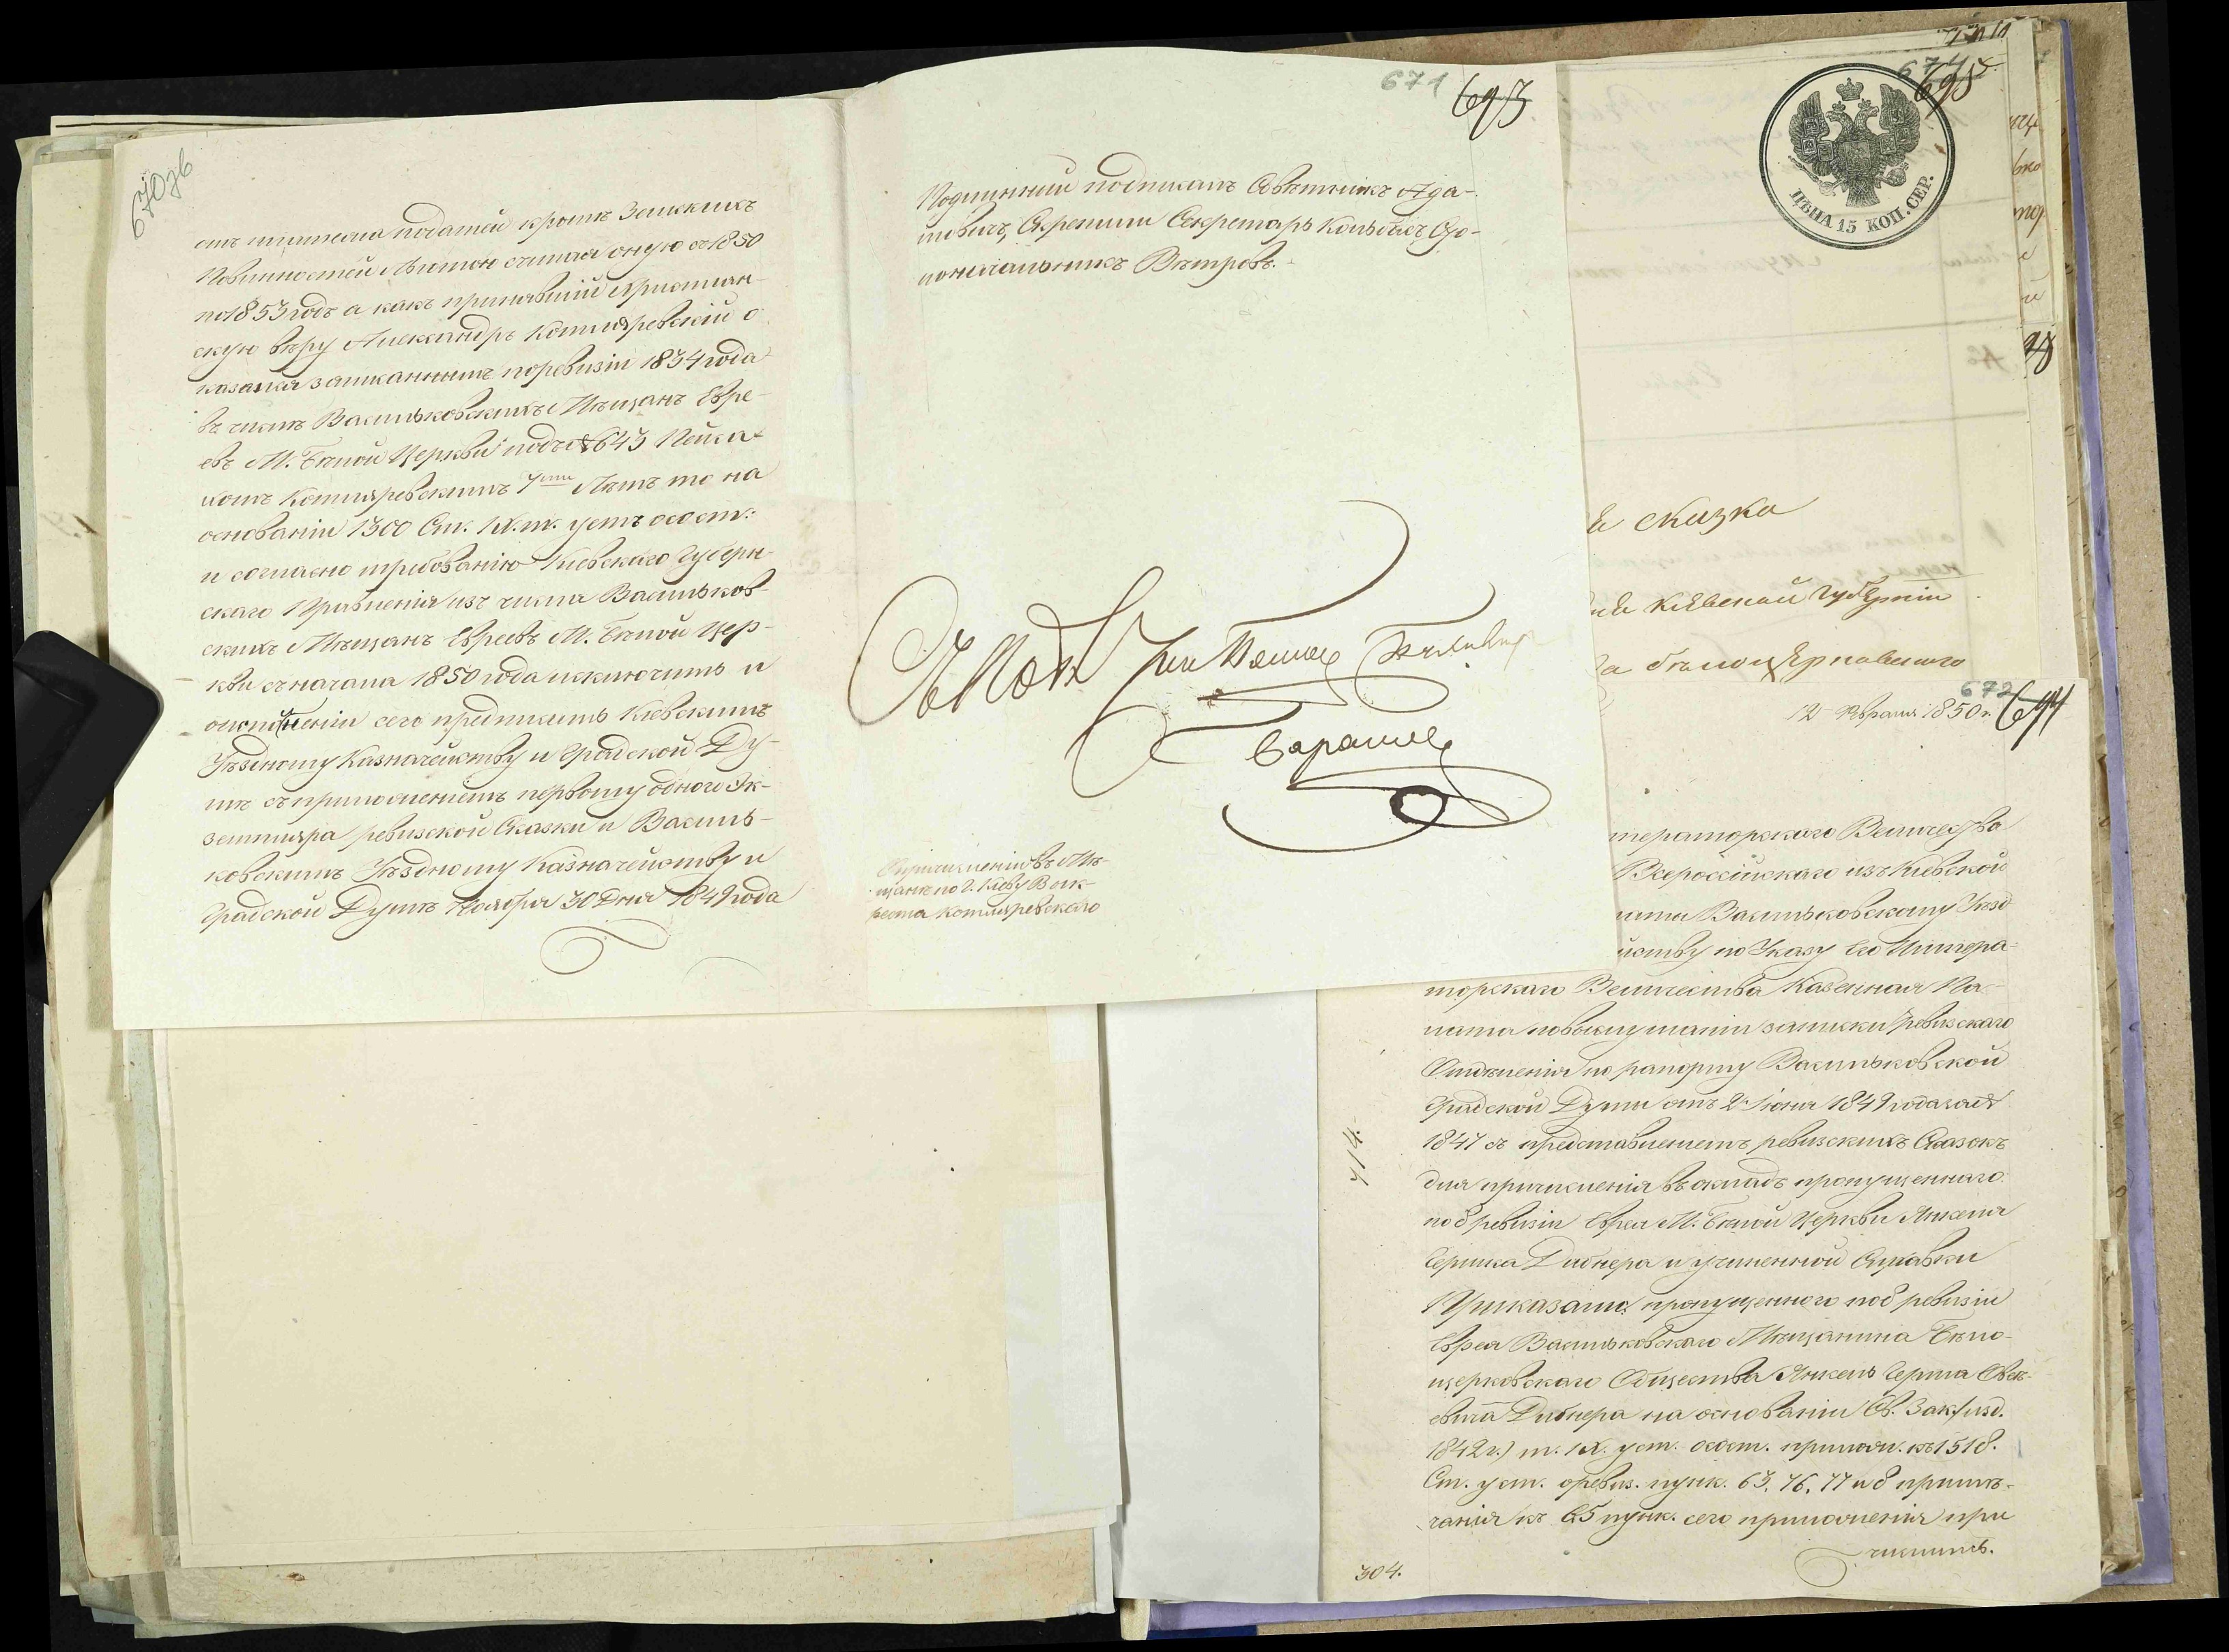 670 зв
отъ платежа податей кромѣ Земскихъ
Повинностей Льготою считая оную съ 1850
по 1853 годъ а какъ принявшій Христіан-
скую вѣру Александръ Котляревскій о
казался записаннымъ по ревизіи 1834 года
въ числѣ Васильковскихъ Мѣщанъ Евре-
евъ М. Бѣлой Церкви подъ № 643
Котляревскимъ 7ми Лѣтъ то на
основаніи 1300 Ст. IX. т. уст о сост:
и согласно требованію Кіевскаго Губерн-
скаго Правленія изъ числа Васильков-
скихъ Мѣщанъ Евреевъ М. Бѣлой Цер-
кви съ начала 1850 года исключить и
о исполненіи сего предписать Кіевскимъ
Уѣздному Казначейству и Градской Ду-
мѣ съ приложеніемъ первому одного Эк-
земпляра ревизской Сказки и Василь-
ковскимъ Уѣздному Казначейству и
Градской Думѣ Ноября 30 Дня 1849 года
671
693
Подлинный подписалъ Совѣтникъ Ада-
мовичъ, Скрепили Секретарь Столо-
поначальникъ Вѣтровъ.
Съ Подл
О причисленіи въ Мѣ-
щанъ по г. Кіеву Вык-
реста Котляревскаго
674
695
ЦѢНА 15 КОП. СЕР.
сказка
Кіевской Губерніи
бѣлоцерковскаго
672
694
12 Февраля 1850 г.
Величества
Всероссійскаго изъ Кіевской
Васильковскому Уѣзд
по Указу Его Импера-
торскаго Величества Казенная Па-
лата по выслушаніи записки ревизскаго
Отдѣленія по рапорту Васильковской
Градской Думы отъ 2 Іюня 1849 года за №
1847 съ представленіемъ ревизскихъ Сказокъ
для причисленія въ окладъ пропущеннаго
по 8 ревизіи Еврея М. Бѣлой Церкви Янкеля
Гершка Дибнера и учиненной Справки
Приказали пропущеннаго по 8 ревизіи
Еврея Васильковскаго Мѣщанина Бѣло-
церковскаго Общества Янкель Герша
Дибнера на основаніи Св. Зак (изд.
1842 г.) т. IX. уст. о сост. прилож. къ 1518.
Ст. уст. о ревиз. пунк. 63, 76, 77 и 8 примѣ-
чанія къ 65 пунк. сего приложенія при
числить.
304.